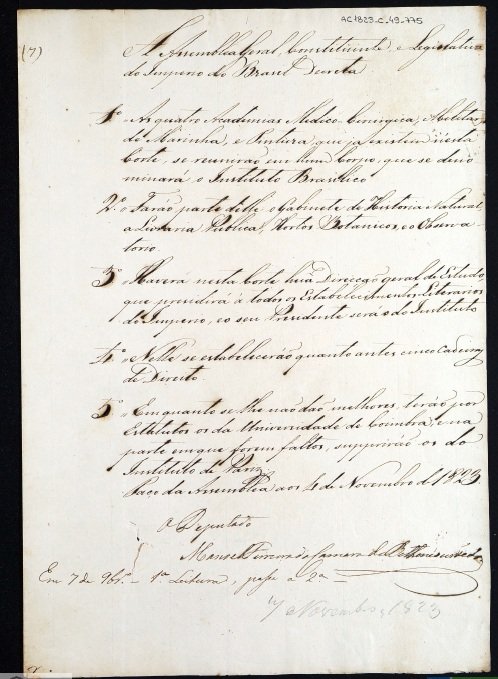 AC1823-C-49-775
(7)
A Assemblea Geral, Constituinte, e Legislativa
do Imperio do Brasil Decreta
1º As quatro Academias Medico-Cirurgica, Militar,
de Marinha, e Pintura, que ja existem nesta
Corte, se reunirão em hum Corpo, que se deno
minará o Instituto Brasilico
2º Farão parte delle o Gabinete de Historia Natural,
a Livraria Publica, Hortos Botanicos, e o Observa-
torio.
3º Haverá nesta Corte huã Direcção geral de Estudo
que presidirá á todos os Estabelecimentos Literarios
do Imperio, e o seu Presidente será o do Instituto
4º Nelle se estabelecerão quanto antes cinco Cadeiras
de Direito.
5º Emquanto se lhe não dão melhores, terão por
Estatutos os da Universidade de Coimbra, e na
parte em que forem faltos, suppriráo os do
Instituto de Pariz
Paço da Assemblea aos 4 de Novembro de 1823
O Deputado
Manuel Ferreira da Camara de Bethencourt e Sá
Em 7 de 9br.º - 1ª Leitura, passe a 2ª -
7 Novembro, 1823